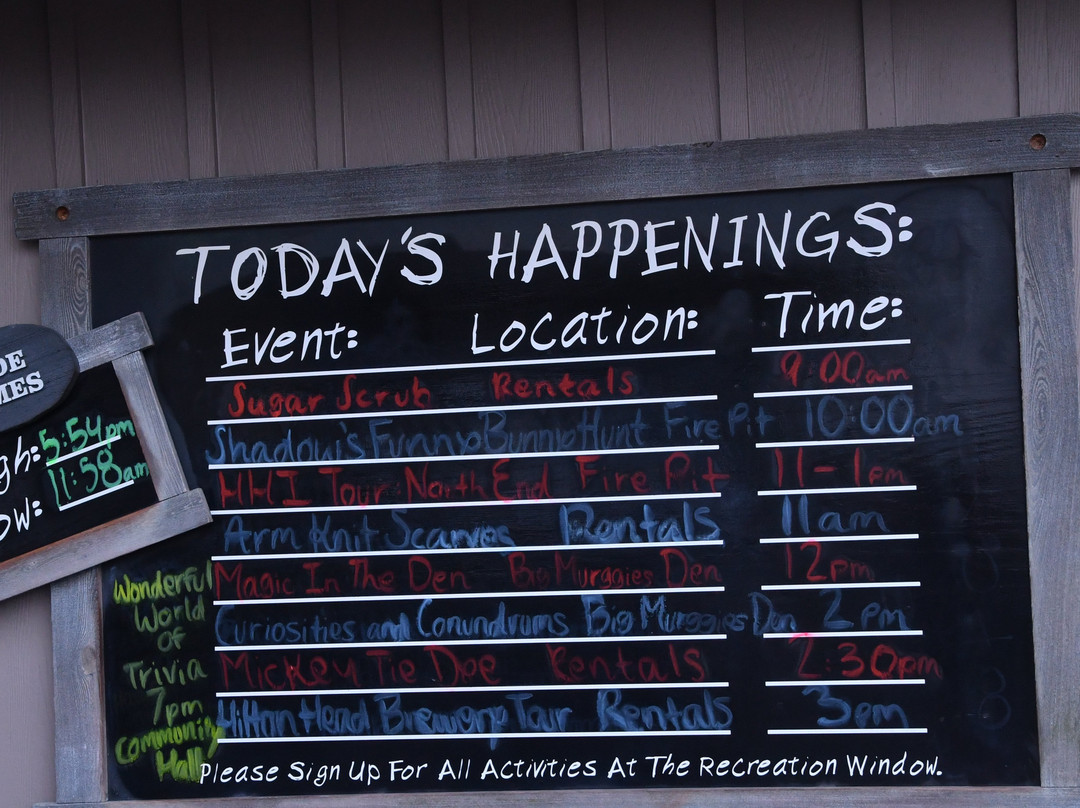 TODAY'S HAPPENINGS:
Event: Location: Time:
Sugar Scrub Rentals 9:00am
Shadow's Funny Bunny Hunt Fire Pit 10:00am
HHI Tour North End Fire Pit 11-1pm
Arm Knit Scarves Rentals 11am
Magic In The Den Big Murggies Den 12pm
Curiosities and Conundrums Big Murggies Den 2pm
Mickey Tie Dye Rentals 2:30pm
Hilton Head Brewing Tour Rentals 3pm
Please Sign Up For All Activities At The Recreation Window.
Wonderful
World
of
Trivia
7pm
Community
Hall
DE
MES
gh: 5:54pm
ow: 11:58am